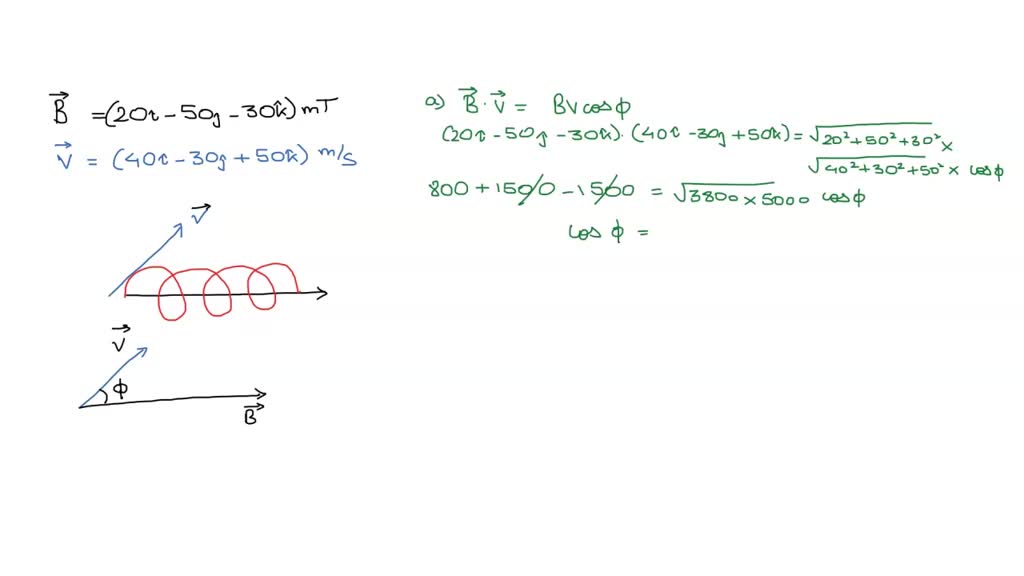 B⃗ = (20î - 50ĵ - 30k̂) mT
V⃗ = (40î - 30ĵ + 50k̂) m/s
V⃗
V⃗
ϕ
B⃗
a) B⃗ · V⃗ = BV cos ϕ
(20î - 50ĵ - 30k̂) · (40î - 30ĵ + 50k̂) = √20² + 50² + 30² ×
√40² + 30² + 50² × cos ϕ
800 + 1500 - 1500 = √3800 × 5000 cos ϕ
cos ϕ =